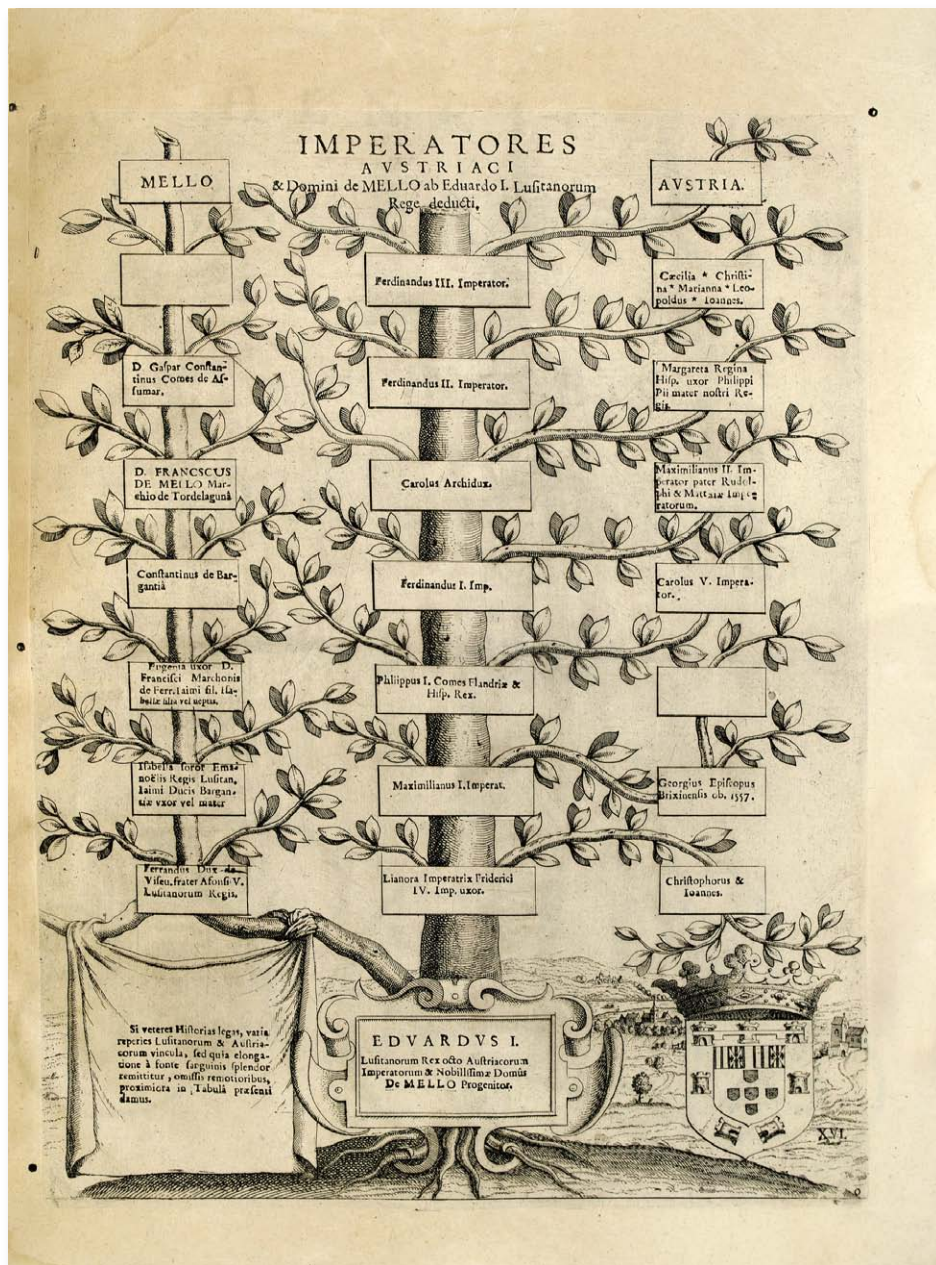 IMPERATORES
AVSTRIACI
& Domini de MELLO ab Eduardo I. Lusitanorum
Rege deducti.
MELLO
D. Gaspar Constan-
tinus Comes de As-
sumar.
D. FRANCSCUS
DE MELLO Mar-
chio de Tordelagunâ
Constantinus de Bar-
gantiâ
Eugenia uxor D.
Francisci Marchonis
de Ferr. Iaimi fil. Isa-
bellæ filia vel neptis.
Isabella soror Ema-
noëlis Regis Lusitan.
Iaimi Ducis Bargan-
tiæ vxor vel mater
Ferrandus Dux de
Viseu, frater Afonsi V.
Lusitanorum Regis.
Ferdinandus III. Imperator.
Ferdinandus II. Imperator.
Carolus Archidux.
Ferdinandus I. Imp.
Philippus I. Comes Flandriæ &
Hisp. Rex.
Maximilianus I. Imperat.
Lianora Imperatrix Friderici
IV. Imp. uxor.
AVSTRIA.
Cæcilia * Christi-
na * Marianna * Leo-
poldus * Ioannes.
Margareta Regina
Hisp. uxor Philippi
Pii mater nostri Re-
gis.
Maximilianus II. Im-
perator pater Rudol-
phi & Mattiæ Impe-
ratorum.
Carolus V. Impera-
tor.
Georgius Episcopus
Brixinensis ob. 1557.
Christophorus &
Ioannes.
Si veteres Historias legas, varia
reperies Lusitanorum & Austria-
corum vincula, sed quia elonga-
tione à fonte sanguinis splendor
remittitur, omissis remotioribus,
proximiora in Tabulâ præsenti
damus.
EDVARDVS I.
Lusitanorum Rex octo Austriacorum
Imperatorum & Nobilissimæ Domûs
De MELLO Progenitor.
XVI.